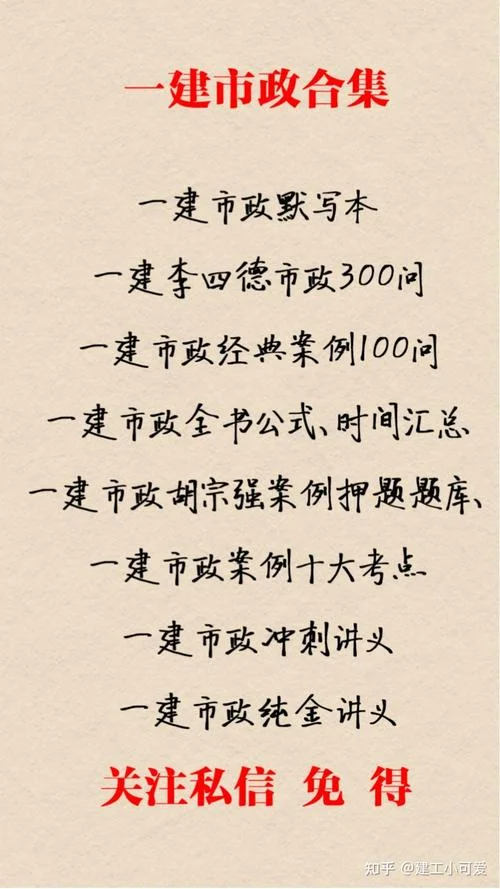 一建市政合集
一建市政默写本
一建李四德市政300问
一建市政经典案例100问
一建市政全书公式、时间汇总
一建市政胡宗强案例押题题库、
一建市政案例十大考点
一建市政冲刺讲义
一建市政纯金讲义
关注私信 免 得
知乎 @建工小可爱